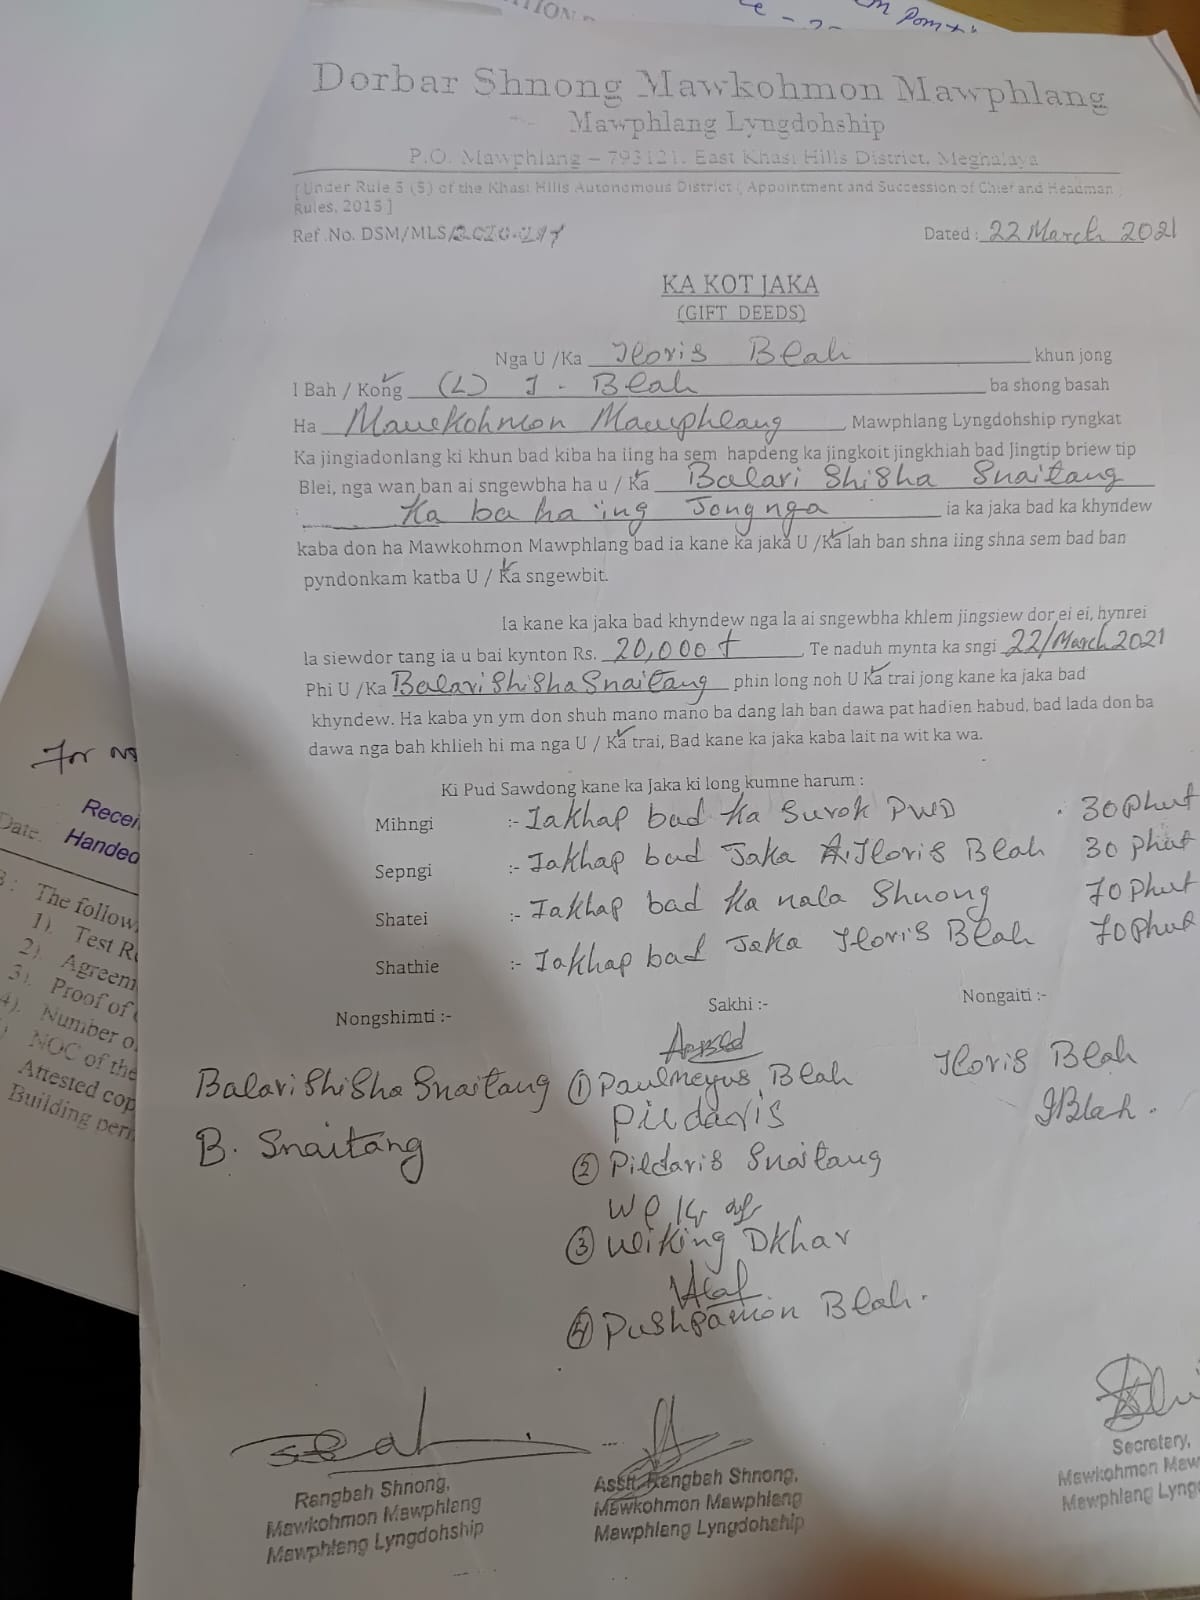 Dorbar Shnong Mawkohmon Mawphlang
Mawphlang Lyngdohship
P.O. Mawphlang – 793121. East Khasi Hills District, Meghalaya
[ Under Rule 5 (5) of the Khasi Hills Autonomous District ( Appointment and Succession of Chief and Headman )
Rules, 2015 ]
Ref .No. DSM/MLS/
Dated : 22 March 2021
KA KOT JAKA
(GIFT DEEDS)
Nga U /Ka Iloris Blah khun jong
I Bah / Kong (L) I. Blah ba shong basah
Ha Mawkohmon Mawphlang , Mawphlang Lyngdohship ryngkat
Ka jingiadonlang ki khun bad kiba ha iing ha sem hapdeng ka jingkoit jingkhiah bad Jingtip briew tip
Blei, nga wan ban ai sngewbha ha u / Ka Balari Shisha Snaitang
Ka ba ha ing Jong nga ia ka jaka bad ka khyndew
kaba don ha Mawkohmon Mawphlang bad ia kane ka jaka U /Ka lah ban shna iing shna sem bad ban
pyndonkam katba U / Ka sngewbit.
Ia kane ka jaka bad khyndew nga la ai sngewbha khlem jingsiew dor ei ei, hynrei
la siewdor tang ia u bai kynton Rs. 20,000 Te naduh mynta ka sngi 22/March 2021
Phi U /Ka Balari Shisha Snaitang phin long noh U Ka trai jong kane ka jaka bad
khyndew. Ha kaba yn ym don shuh mano mano ba dang lah ban dawa pat hadien habud, bad lada don ba
dawa nga bah khlieh hi ma nga U / Ka trai, Bad kane ka jaka kaba lait na wit ka wa.
Ki Pud Sawdong kane ka Jaka ki long kumne harum :
Mihngi :- Iakhap bad Ka Surok PWD 30 phut
Sepngi :- Iakhap bad Jaka Iloris Blah 30 phut
Shatei :- Iakhap bad Ka nala Shnong 70 phut
Shathie :- Iakhap bad Jaka Iloris Blah 70 phut
Nongshimti :- Sakhi :- Nongaiti :-
Balari Shisha Snaitang
B. Snaitang
① Paulmeyus Blah
Pildaris
② Pildaris Snaitang
③ Wiking Dkhar
④ Pushpamon Blah.
Iloris Blah
IBlah.
Rangbah Shnong,
Mawkohmon Mawphlang
Mawphlang Lyngdohship
Asstt. Rangbah Shnong,
Mawkohmon Mawphlang
Mawphlang Lyngdohship
Secretary,
Mawkohmon Maw
Mawphlang Lyng
For
Recei
Date: Handed
The follow
1). Test R
2). Agreem
3). Proof of
4). Number o
NOC of the
Attested cop
Building per